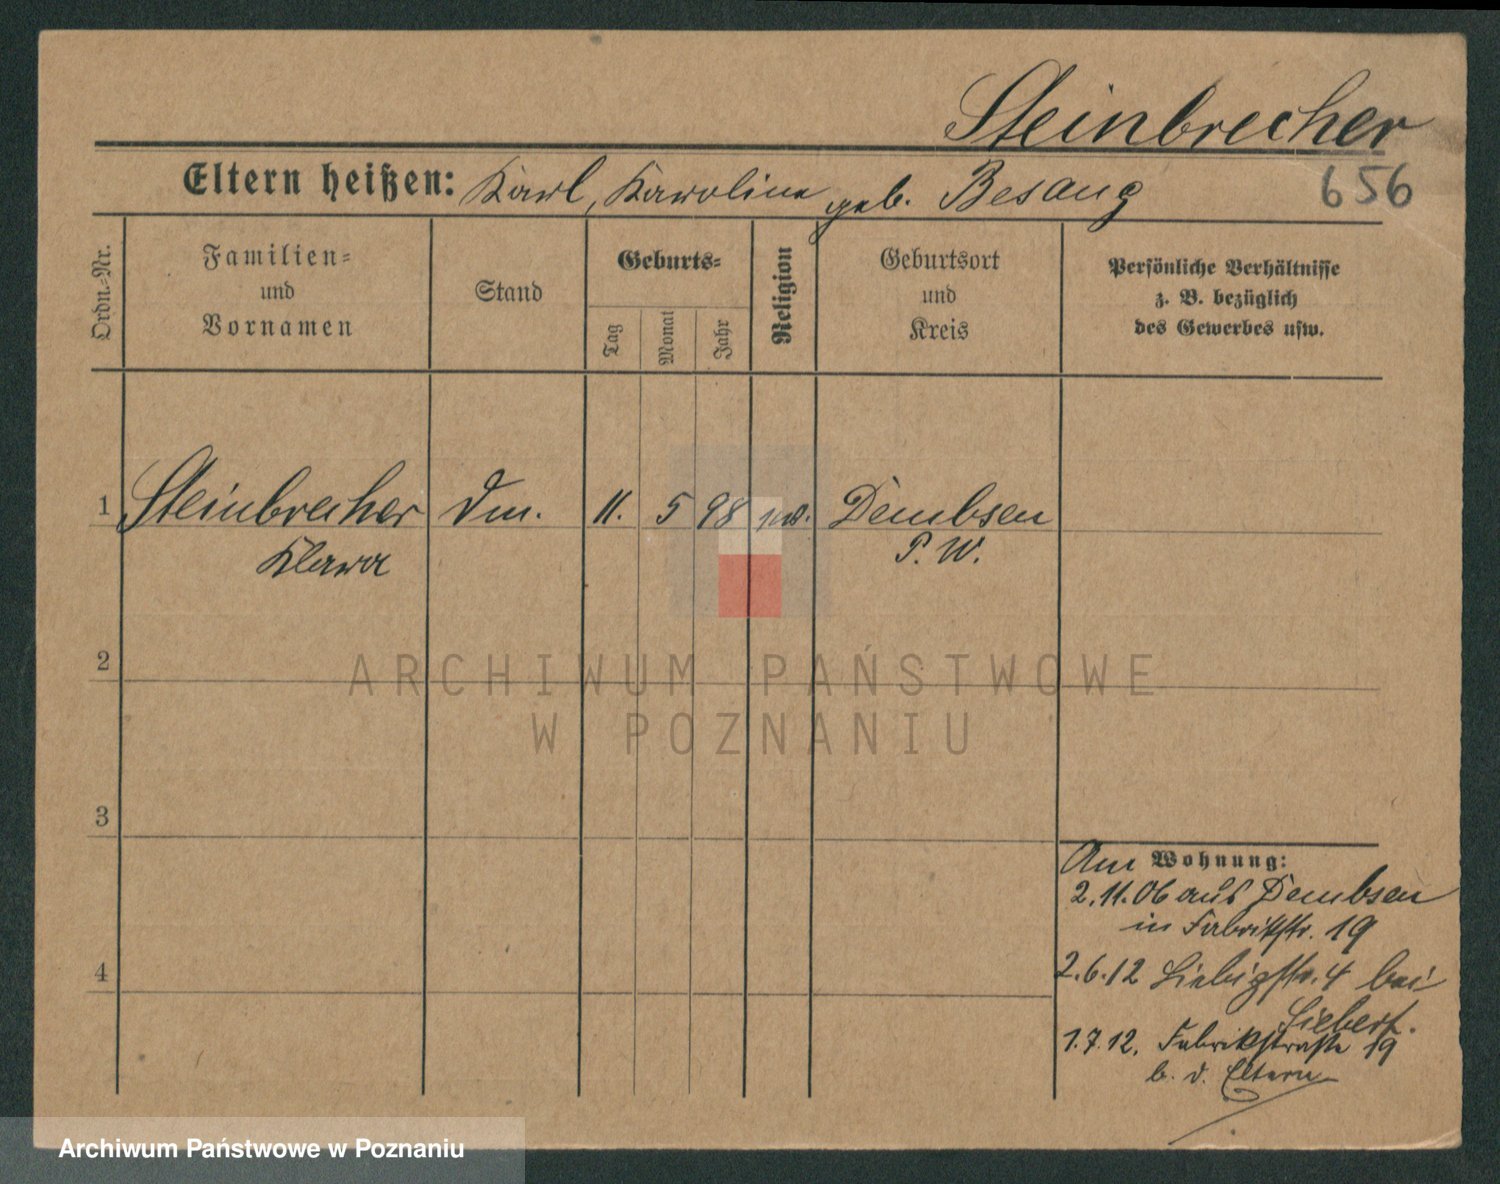 Steinbrecher
Eltern heißen: Karl, Karoline geb. Besang
656
Ordn.-Nr.
Familien-
und
Vornamen
Stand
Geburts-
Tag
Monat
Jahr
Religion
Geburtsort
und
Kreis
Persönliche Verhältnisse
z. B. bezüglich
des Gewerbes usw.
1 Steinbrecher Dm. 11. 5 98 Dembsen
Klara P. W.
2
3
4
ARCHIWUM PAŃSTWOWE
W POZNANIU
Am Wohnung:
2.11.06 aus Dembsen
in Fabrikstr. 19
2.6.12 Liebigstr. 4 bei
Siebert.
1.7.12. Fabrikstraße 19
b. d. Eltern
Archiwum Państwowe w Poznaniu